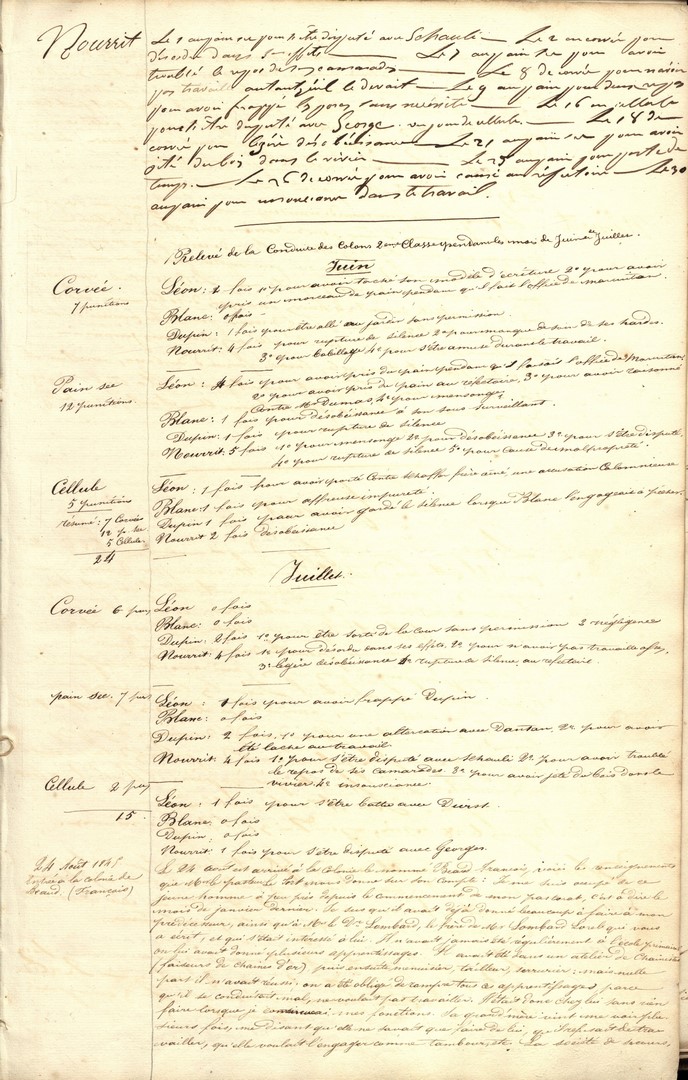 Nourrit
Le 1 au pain sec pour s'être disputé avec Schauli — Le 2 au corvée pour
désordre dans ses effets — Le 7 au pain sec pour avoir
troublé le repos de ses camarades — Le 8 de corvée pour n'avoir
pas travaillé autant qu'il le devait — Le 9 au pain pour deux repas
pour avoir frappé sans nécessité — Le 16 en cellule
pour s'être disputé avec George. un jour de cellule. — Le 18 de
corvée pour légère désobéissance — Le 21 au pain sec pour avoir
jeté du bois dans le vivier — Le 25 au pain pour perte de
temps. — Le 26 de corvée pour avoir causé au réfectoire — Le 30
au pain pour insouciance dans le travail.
Relevé de la Conduite des Colons 2eme Classe pendant les mois de Juin et Juillet.
Juin
Corvée.
7 punitions
Léon: 2 fois 1º pour avoir taché son modèle d'écriture 2º pour avoir
pris un morceau de pain pendant qu'il fait l'office de marmiton.
Blanc: 0 fois
Dupin: 1 fois pour être allé au jardin sans permission.
Nourrit: 4 fois pour rupture de silence 2º pour manque de soin de ses hardes.
3º pour babillage 4º pour s'être amusé durant le travail.
Pain sec
12 punitions.
Léon: 4 fois pour avoir pris du pain pendant qu'il faisait l'office de Marmiton
2º pour avoir pris du pain au réfectoire, 3º pour avoir raisonné
contre Mr Dumas, 4º pour mensonge
Blanc: 1 fois pour désobéissance à son sous surveillant.
Dupin: 1 fois pour rupture de silence
Nourrit: 5 fois 1º pour mensonge 2º pour désobéissance 3º pour s'être disputé
4º pour rupture de silence 5º pour cause de malpropreté.
Cellule
5 punitions
Léon: 1 fois pour avoir porté contre frère aîné une accusation Calomnieuse
Blanc: 1 fois pour affreuse impureté.
Dupin 1 fois pour avoir gardé le silence lorsque Blanc l'engageait à pécher.
Nourrit 2 fois désobéissance
résumé: 7 Corvées
12 p. sec
5 Cellule
24
Juillet.
Corvée 6 pun
Léon 0 fois
Blanc: 0 fois
Dupin: 2 fois 1º pour être sorti de la cour sans permission 2 négligence
Nourrit: 4 fois 1º pour désordre dans ses effets, 2º pour n'avoir pas travaillé assez,
3º légère désobéissance 4º rupture de silence au réfectoire.
pain sec. 7 pun
Léon: 1 fois pour avoir frappé Dupin.
Blanc: 0 fois
Dupin: 2 fois, 1º pour une altercation avec Dantan, 2º pour avoir
été lache au travail
Nourrit: 4 fois 1º pour s'être disputé avec Schauli 2º pour avoir troublé
le repos de ses camarades. 3º pour avoir jeté du bois dans le
vivier 4º insouciance.
Cellule 2 pun
15.
Léon: 1 fois pour s'être battu avec Durst.
Blanc, 0 fois
Dupin: 0 fois
Nourrit: 1 fois pour s'être disputé avec Georges.
24 Août 1845
Entrée à la colonie de
Braud. (François)
Le 24 août est arrivé à la Colonie le nommé Braud François, voici les renseignements
que Mr le pasteur nous donne sur son Compte: Je me suis occupé de ce
jeune homme à peu près depuis le commencement de mon pastorat, c'est à dire le
mois de janvier dernier. Je sais qu'il avait déjà donné beaucoup à faire à mon
prédécesseur, ainsi qu'à Mr le Dr Lombard, le frère de Mr Lombard qui vous
a écrit, et qui s'était intéressé à lui. Il n'avait jamais été régulièrement à l'école primaire,
on lui avait donné plusieurs apprentissages. Il avait été dans un atelier de Chainistes
(faiseurs de chaines d'or) puis ensuite menuisier, tailleur, serrurier; mais nulle
part il n'avait réussi. on a été obligé de rompre tous ces apprentissages, parce
qu'il se conduisait mal, ne voulant pas travailler. Il était donc chez lui sans rien
faire lorsque je commençai mes fonctions. Sa grand'mère vint me voir plu-
sieurs fois, me disant qu'elle ne savait que faire de lui, qu'il refusait de tra
vailler, qu'elle voulait l'engager comme tambour, etc. La société de secours,